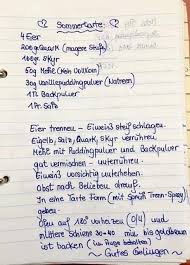 Sommertarte
4 Eier
200g Quark (magere Stufe)
100gr. Skyr
50g Mehl (kein Vollkorn)
30g Vanillepuddingpulver (Natreen)
1TL Backpulver
1Pr. Salz
Eier trennen - Eiweiß steif schlagen.
Eigelb, Salz, Quark, Skyr verrühren,
Mehl mit Puddingpulver und Backpulver
gut vermischen - unterrühren.
Eiweiß vorsichtig unterheben.
Obst nach Belieben drauf.
In eine Tarte Form (mit Sprüh Trenn-Spray)
geben
Ofen auf 180° vorheizen (O/U) und
mittlere Schiene 30-40 min bis goldbraun
ist backen (im Auge behalten)
~ Gutes Gelingen ~